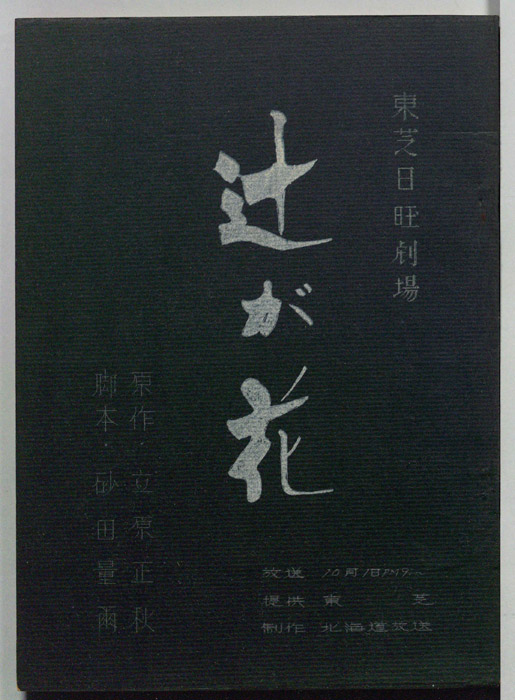 東芝日旺劇場
辻が花
原作・立原正秋
脚本・砂田量雨
放送 10月1日PM9
提供 東芝
制作 北海道放送